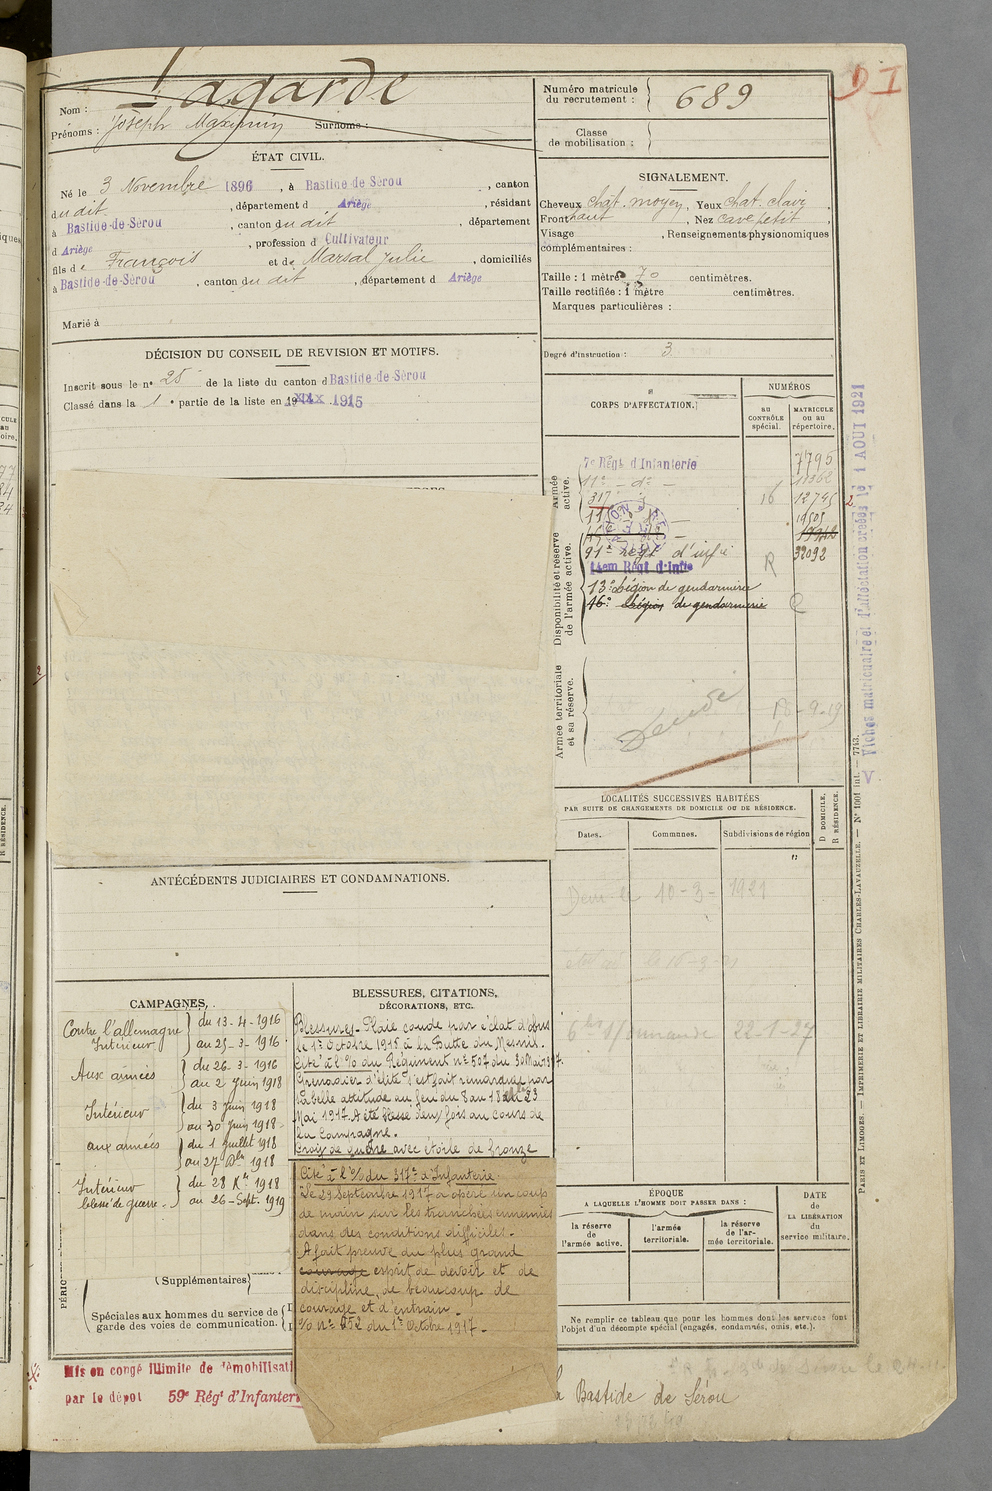 Nom : Lagarde
Prénoms : Joseph Maximin Surnoms :
Numéro matricule du recrutement : 689
Classe de mobilisation :
D I
ÉTAT CIVIL.
Né le 3 Novembre 1896, à Bastide-de-Sérou, canton
du dit, département d Ariège, résidant
à Bastide-de-Sérou, canton du dit, département
d Ariège, profession d Cultivateur
fils de François et de Marsal Julie, domiciliés
à Bastide-de-Sérou, canton du dit, département d Ariège
Marié à
SIGNALEMENT.
Cheveux chât. moyen, Yeux chat. clair
Front haut, Nez cave petit,
Visage , Renseignements physionomiques
complémentaires :
Taille : 1 mètre 70 centimètres.
Taille rectifiée : 1 mètre centimètres.
Marques particulières :
Degré d'instruction : 3
DÉCISION DU CONSEIL DE REVISION ET MOTIFS.
Inscrit sous le n° 25 de la liste du canton d Bastide-de-Sérou
Classé dans la 1e partie de la liste en 1915
CORPS D'AFFECTATION.
NUMÉROS
au CONTRÔLE spécial.
MATRICULE ou au répertoire.
Armée active.
7e Régt d'Infanterie 7795
11e - do -
317 16 12795
Disponibilité et réserve de l'armée active.
91e régt d'infie R 32092
14em Régt d'Infie
13e Légion de gendarmerie
16e Légion de gendarmerie
Armée territoriale et sa réserve.
Fiches matriculaire et d'affectation créées le 1 AOUT 1921
LOCALITÉS SUCCESSIVES HABITÉES
PAR SUITE DE CHANGEMENTS DE DOMICILE OU DE RÉSIDENCE.
Dates.
Communes.
Subdivisions de région
D DOMICILE,
R RÉSIDENCE.
10-3-1921
22-1-27
ANTÉCÉDENTS JUDICIAIRES ET CONDAMNATIONS.
CAMPAGNES.
Contre l'allemagne
Intérieur du 13-4-1916
au 25-3-1916
Aux armées du 26-3-1916
au 2 Juin 1918
Intérieur du 3 Juin 1918
au 30 Juin 1918
aux armées du 1 Juillet 1918
au 27 Xbre 1918
Intérieur du 28 Xre 1918
blessé de guerre. au 26-Sept. 1919
(Supplémentaires)
Spéciales aux hommes du service de
garde des voies de communication.
BLESSURES, CITATIONS,
DÉCORATIONS, ETC.
Blessures - Plaie coude par éclat d'obus
le 1er Octobre 1915 à la Butte du Mesnil.
Cité à l'% du Régiment n° 507 du 30 Mai 1917.
Grenadier d'élite s'est fait remarquer par
sa belle attitude au feu du 8 au 18 23
Mai 1917. A été blessé deux fois au cours de
la Campagne.
Croix de guerre avec étoile de bronze
Cité à l'% du 317e d'Infanterie
"Le 29 Septembre 1917 a opéré un coup
de main sur les tranchées ennemies
dans des conditions difficiles.
A fait preuve du plus grand
courage esprit de devoir et de
discipline, de beaucoup de
courage et d'entrain.
% n° 252 du 1er Octobre 1917.-
ÉPOQUE
A LAQUELLE L'HOMME DOIT PASSER DANS :
la réserve de l'armée active.
l'armée territoriale.
la réserve de l'armée territoriale.
DATE de LA LIBÉRATION du service militaire.
Ne remplir ce tableau que pour les hommes dont les services font
l'objet d'un décompte spécial (engagés, condamnés, omis, etc.).
Mis en congé illimité de démobilisati
par le dépôt 59e Régt d'Infanteri
la Bastide de Sérou
PARIS ET LIMOGES. — IMPRIMERIE ET LIBRAIRIE MILITAIRES CHARLES-LAVAUZELLE. — N° 1001 int. — 7743.